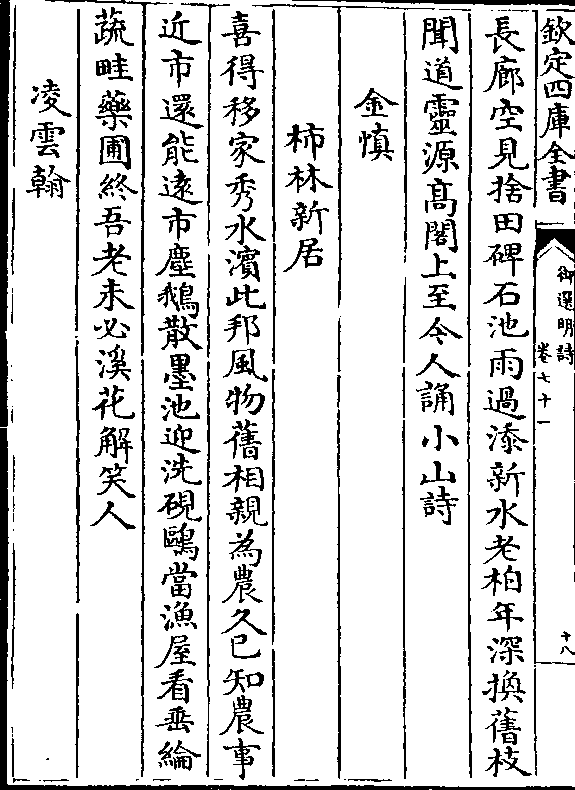 欽定四庫全書
御選明詩
卷七十一
十八
長廊空見捨田碑石池雨過添新水老柏年深換舊枝
聞道靈源髙閣上至今人誦小山詩
金慎
柿林新居
喜得移家秀水濵此邦風物舊相親為農久已知農事
近市還能逺市塵鵝散墨池迎洗硯鷗當漁屋看垂綸
蔬畦藥圃終吾老未必溪花解笑人
凌雲翰